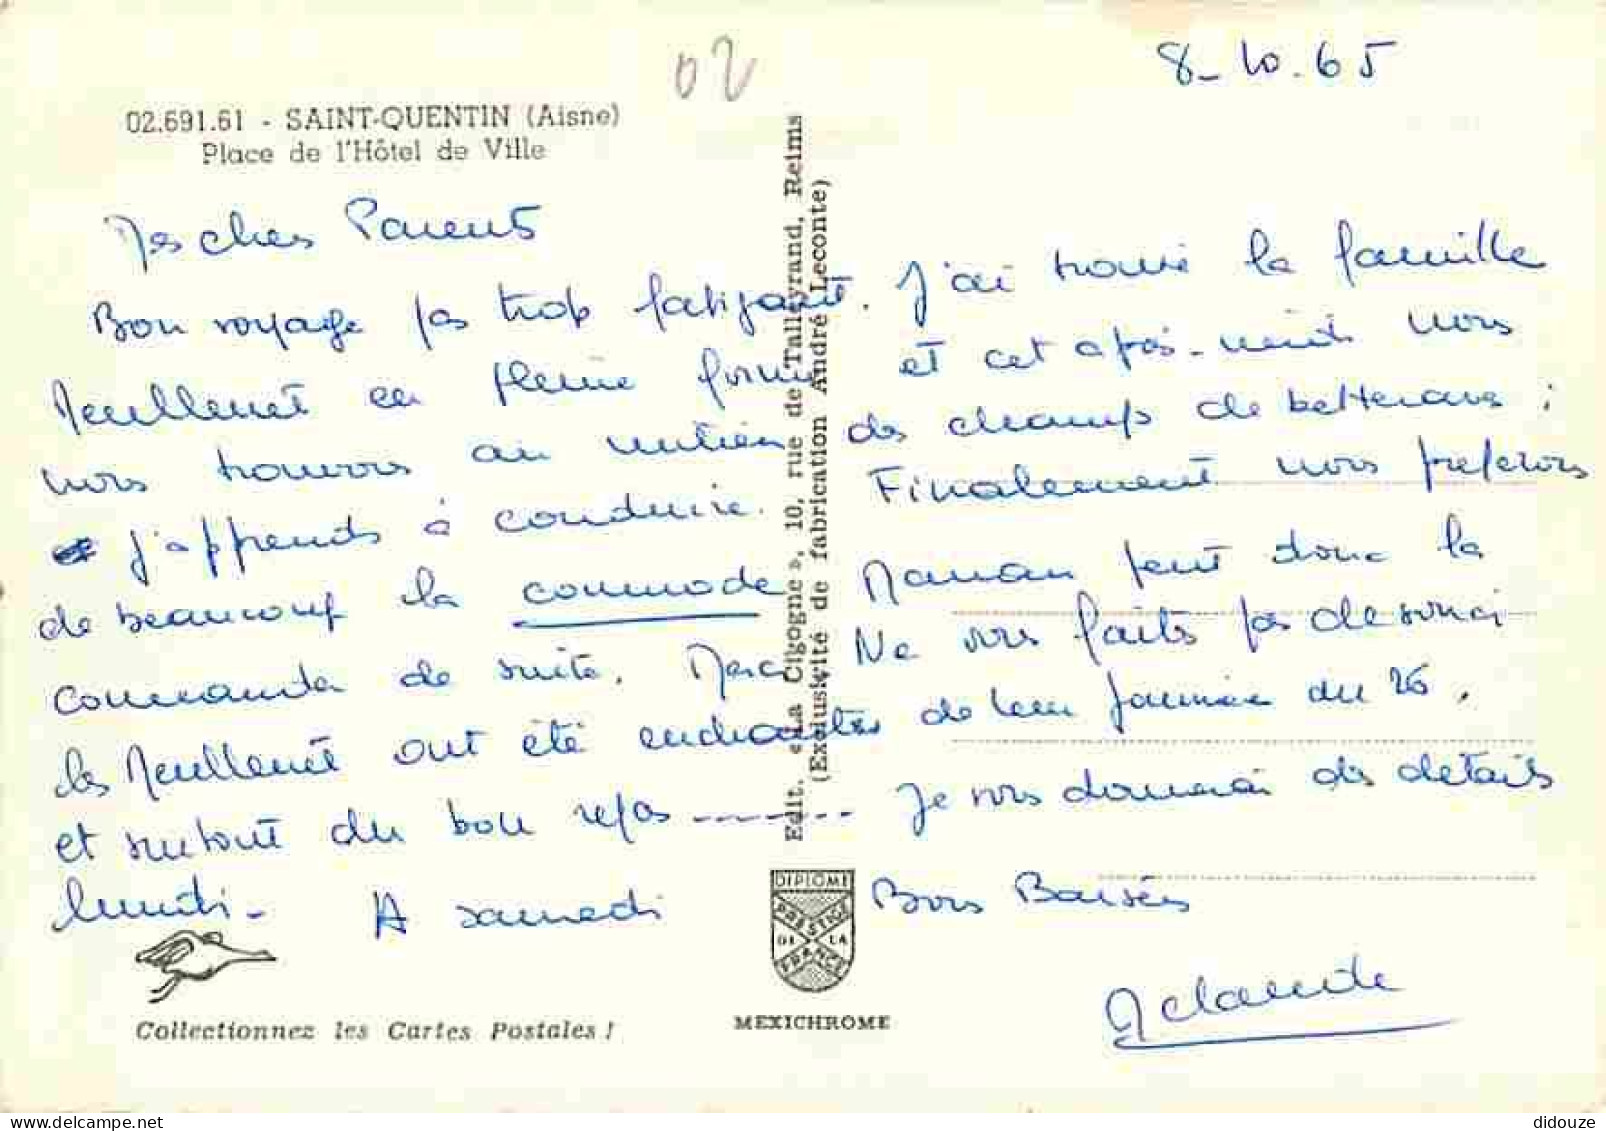 02
8-10.65
02.691.61 - SAINT-QUENTIN (Aisne)
Place de l'Hôtel de Ville
Mes chers Parents
Bon voyage pas trop fatigant. J'ai trouvé la famille
Meullenet en pleine forme et cet après-midi nous
nous trouvons au milieu des champs de betteraves :
j'apprends à conduire. Finalement nous preferons
de beaucoup la commode Maman peut donc la
commander de suite. Merci Ne vous faites pas de souci
les Meullenet ont été enchantés de leur journée du 26,
et surtout du bon repas ------- Je vous donnerai des détails
lundi - A samedi Bons Baisers
Mclaude
Edit. « La Cigogne », 10, rue de Talleyrand, Reims
(Exclusivité de fabrication André Leconte)
DIPLOME
PRESTIGE
DE LA
FRANCE
MEXICHROME
Collectionnez les Cartes Postales !
didouze